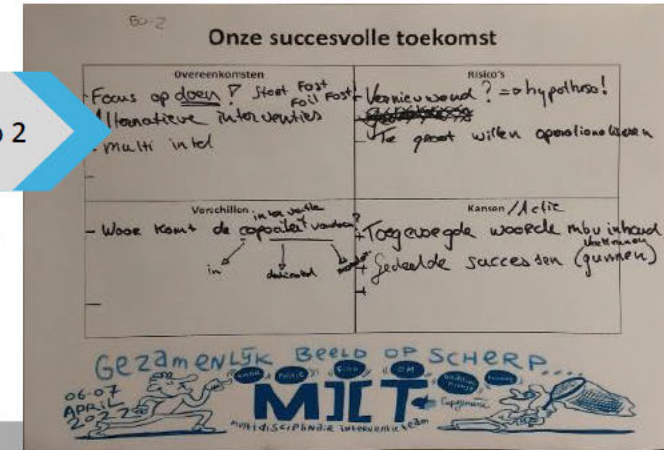 BO-2
Onze succesvolle toekomst
2
Overeenkomsten
- Focus op doen! Start Fast
Fail Fast!
- Alternatieve interventies
- multi intel
-
Risico's
- Vernieuwend? => hypothese!
- Te groot willen operationaliseren
Verschillen
interventie
- Waar komt de capaciteit vandaan?
in
dedicated
-
Kansen / Actie
+ Toegevoegde waarde mbv inhoud
vertrouwen
+ Gedeelde successen (gunnen)
+
GEZAMENLIJK BEELD OP SCHERP....
06-07
APRIL
2022
POLITIE
FIOD
OM
MIT
Capgemini
multidisciplinair interventieteam